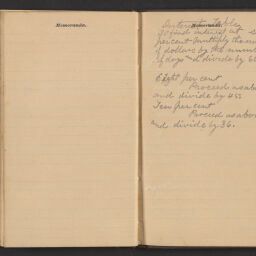 Memoranda.
Memoranda.
Interest Tables
To find interest at
per cent multiply the num
of dollars by the numb
of days and divide by 6
Eight per cent
Proceed as abov
and divide by 45
Ten per cent
Proceed as abov
and divide by 36.